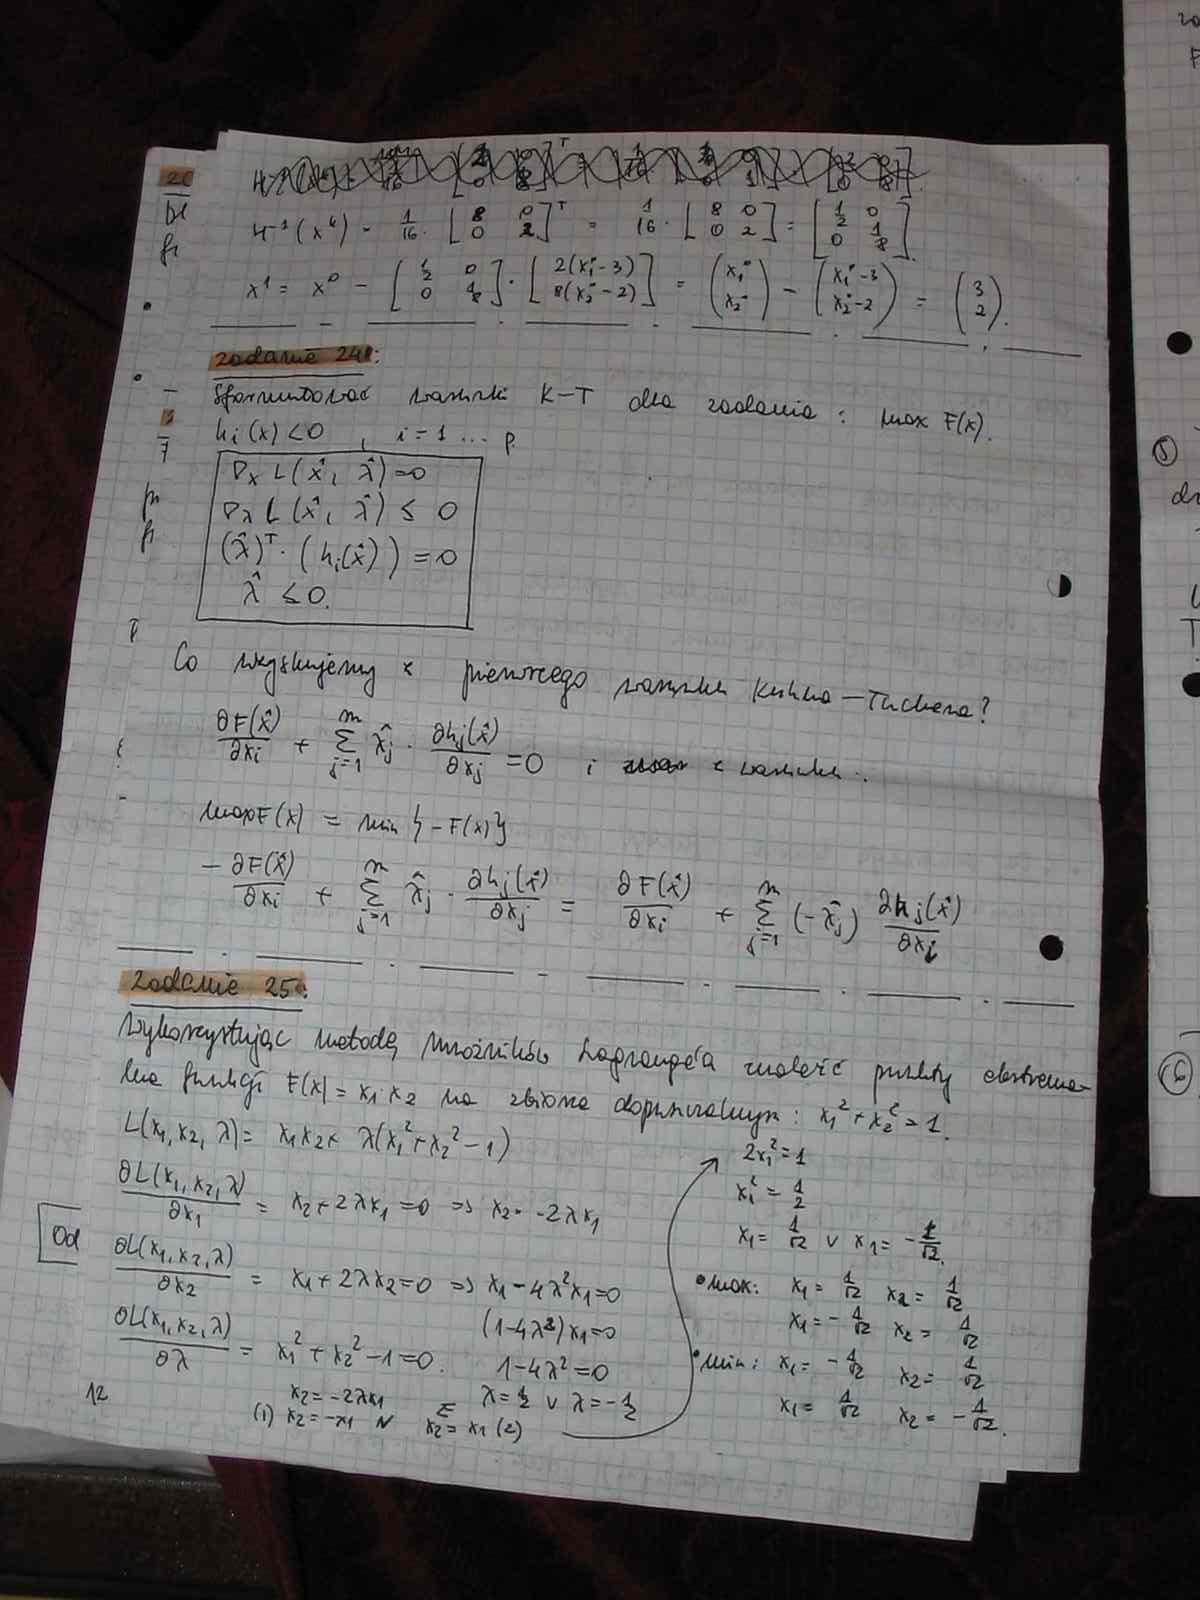 H⁻¹(x⁰) = 1/16 · [8 0; 0 2]ᵀ = 1/16 · [8 0; 0 2] = [1/2 0; 0 1/8].
x¹ = x⁰ - [1/2 0; 0 1/8] · [2(x₁⁰-3); 8(x₂⁰-2)] = (x₁⁰; x₂⁰) - (x₁⁰-3; x₂⁰-2) = (3; 2).
zadanie 24:
Sformułować warunki K-T dla zadania: max F(x).
hᵢ(x) < 0 , i = 1 ... p.
∇ₓ L(x̂, λ̂) = 0
∇λ L(x̂, λ̂) ≤ 0
(λ̂)ᵀ · (hᵢ(x̂)) = 0
λ̂ ≤ 0.
Co uzyskujemy z pierwszego warunku Kuhna-Tuckera?
∂F(x̂)/∂xᵢ + Σ_{j=1}^{m} λ̂ⱼ · ∂hⱼ(x̂)/∂xⱼ = 0 i z warunku..
max F(x) = min {-F(x)}
-∂F(x̂)/∂xᵢ + Σ_{j=1}^{m} λ̂ⱼ · ∂hⱼ(x̂)/∂xⱼ = ∂F(x̂)/∂xᵢ + Σ_{j=1}^{m} (-λ̂ⱼ) ∂hⱼ(x̂)/∂xᵢ
zadanie 25:
Wykorzystując metodę mnożników Lagrange'a znaleźć punkty ekstrema-
lne funkcji F(x) = x₁·x₂ na zbiorze dopuszczalnym: x₁² + x₂² = 1.
L(x₁, x₂, λ) = x₁x₂ + λ(x₁² + x₂² - 1)
∂L(x₁, x₂, λ)/∂x₁ = x₂ + 2λx₁ = 0 => x₂ = -2λx₁
∂L(x₁, x₂, λ)/∂x₂ = x₁ + 2λx₂ = 0 => x₁ - 4λ²x₁ = 0
(1-4λ²)x₁ = 0
∂L(x₁, x₂, λ)/∂λ = x₁² + x₂² - 1 = 0.
1-4λ² = 0
λ = 1/2 v λ = -1/2
x₂ = -2λx₁
(1) x₂ = -x₁
x₂ = x₁ (2)
2x₁² = 1
x₁² = 1/2
x₁ = 1/√2 v x₁ = -1/√2.
• max: x₁ = 1/√2 x₂ = 1/√2
x₁ = -1/√2 x₂ = 1/√2
• min: x₁ = -1/√2 x₂ = 1/√2
x₁ = 1/√2 x₂ = -1/√2.
Od
12